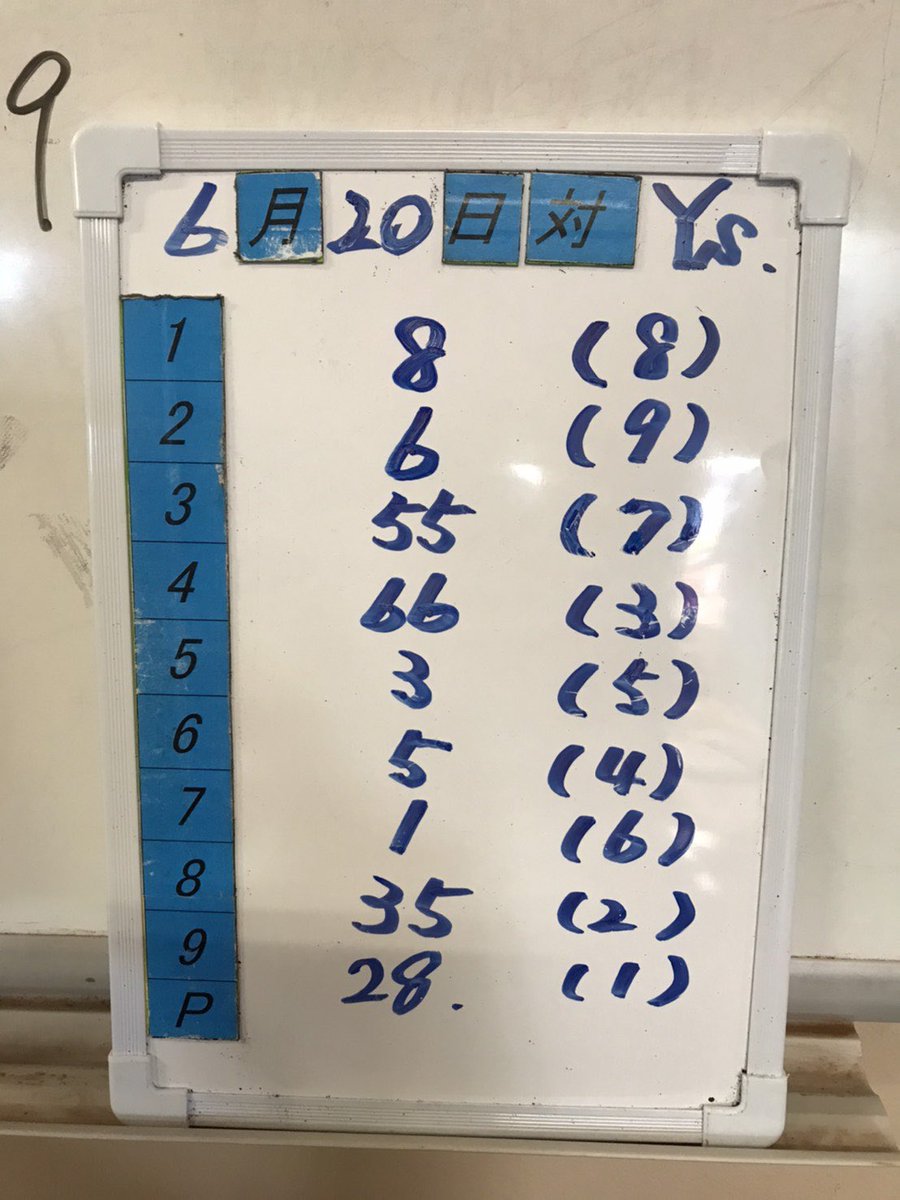 9
6月20日対 Ys.
1 8 (8)
2 6 (9)
3 55 (7)
4 66 (3)
5 3 (5)
6 5 (4)
7 1 (6)
8 35 (2)
9 28. (1)
P